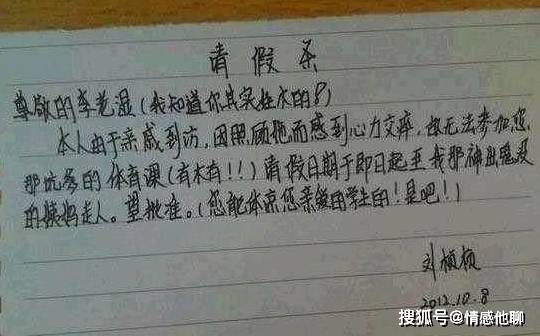 请假条
尊敬的李老湿(我知道你其实姓木的)
本人由于亲戚到访,因照顾她而感到心力交瘁,故无法参加您
那坑爹的体育课(有木有!!)请假日期于即日起至我那神出鬼没
的姨妈走人。望批准。(您能体谅您亲爱的学生的!是吧!)
刘
2012.10.8
搜狐号@情感他聊